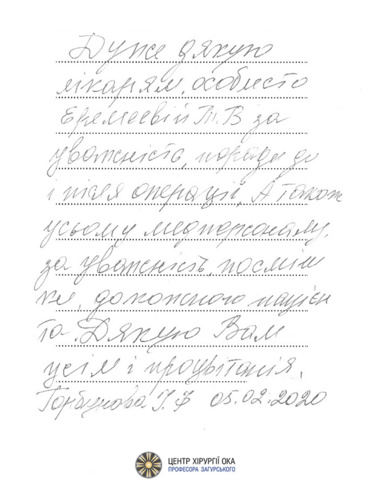 Дуже дякую
лікарям, особисто
Еремеєвій Т.В за
уважність, поради до
і після операції. А також
усьому медперсоналу,
за уважність, посміш
ки, до кожного пацієн
та. Дякую Вам
усім і процвітанія.
Горбунова І.Ф 05.02.2020
ЦЕНТР ХІРУРГІЇ ОКА
ПРОФЕСОРА ЗАГУРСЬКОГО